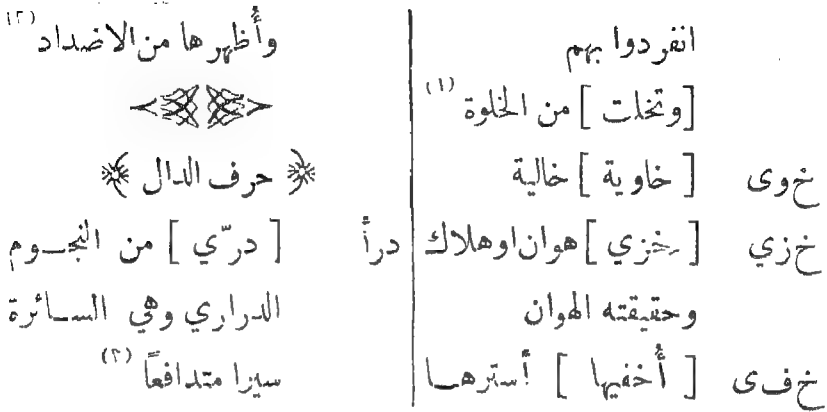 انفردوا بهم
[وتخلت] من الخلوة (١)
خ‌وى [خاوية] خالية
خ‌زي [خزي] هوان اوهلاك
وحقيقته الهوان
خ‌ف‌ى [أُخفيها] أسترهــا
وأُظهرها من الاضداد (٢)
﴿ حرف الدال ﴾
درأ [درّي] من النجــوم
الدراري وهي الســائرة
سيرا متدافعاً (٣)